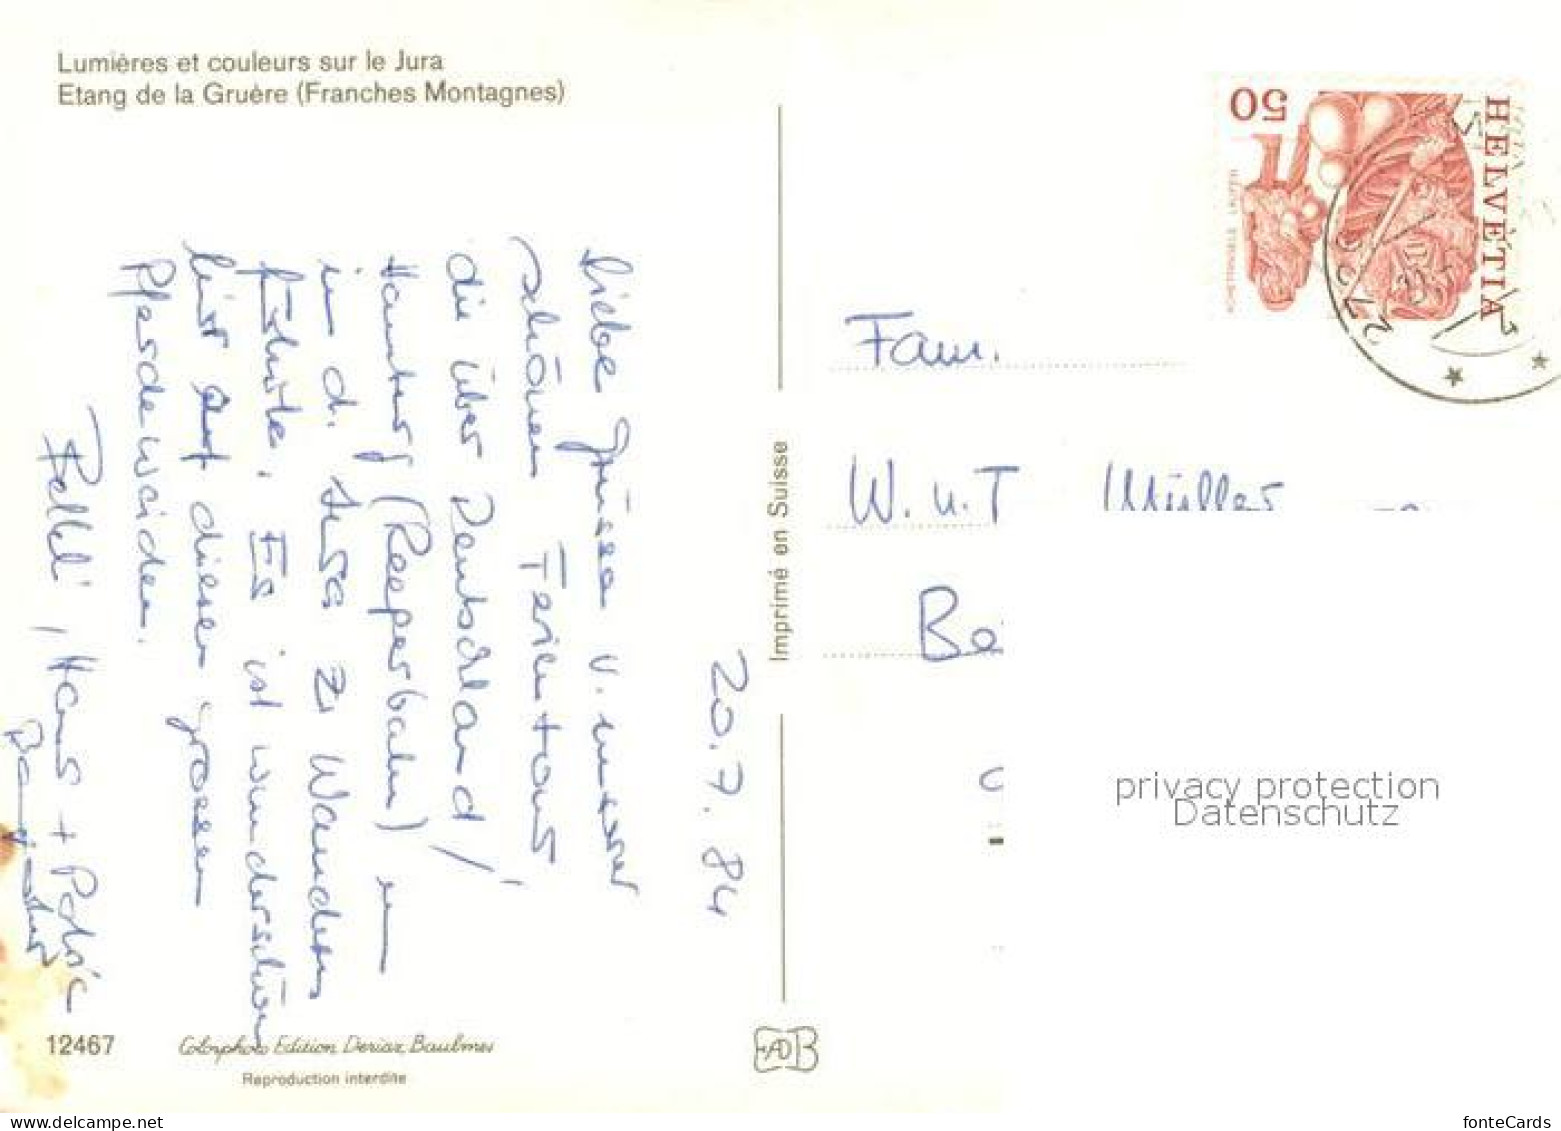 Lumières et couleurs sur le Jura
Etang de la Gruère (Franches Montagnes)
20.7.84
Liebe Grüsse v. unserer
schönen Ferientour
die über Deutschland/
Hamburg (Reeperbahn) –
in d. Jura zu Wandern
führte. Es ist wunderschön
hier auf diesen grossen
Pferdeweiden.
Hans + Patric
Imprimé en Suisse
HELVETIA
50
ACHETRINGELE LAUPEN
Fam.
W. u. T Müller
Be
privacy protection
Datenschutz
12467
Colorphoto Edition Deriaz, Baulmes
Reproduction interdite
delcampe.net
fonteCards